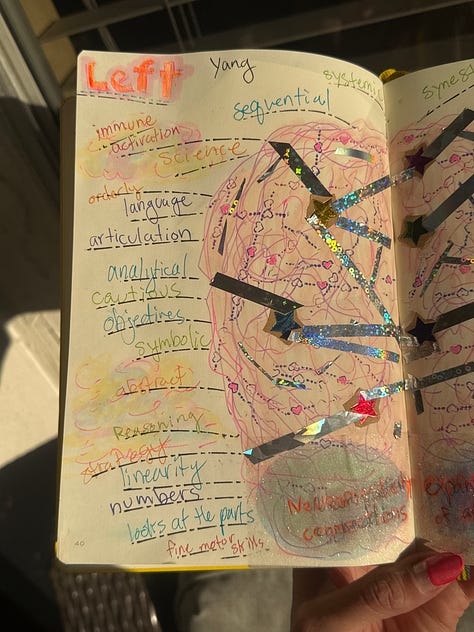 Left
Yang
systemi
synest
sequential
immune
activation
science
orderly
language
articulation
analytical
cautious
objectives
symbolic
abstract
Reasoning
strategy
linearity
numbers
looks at the parts
fine motor skills
connections
40